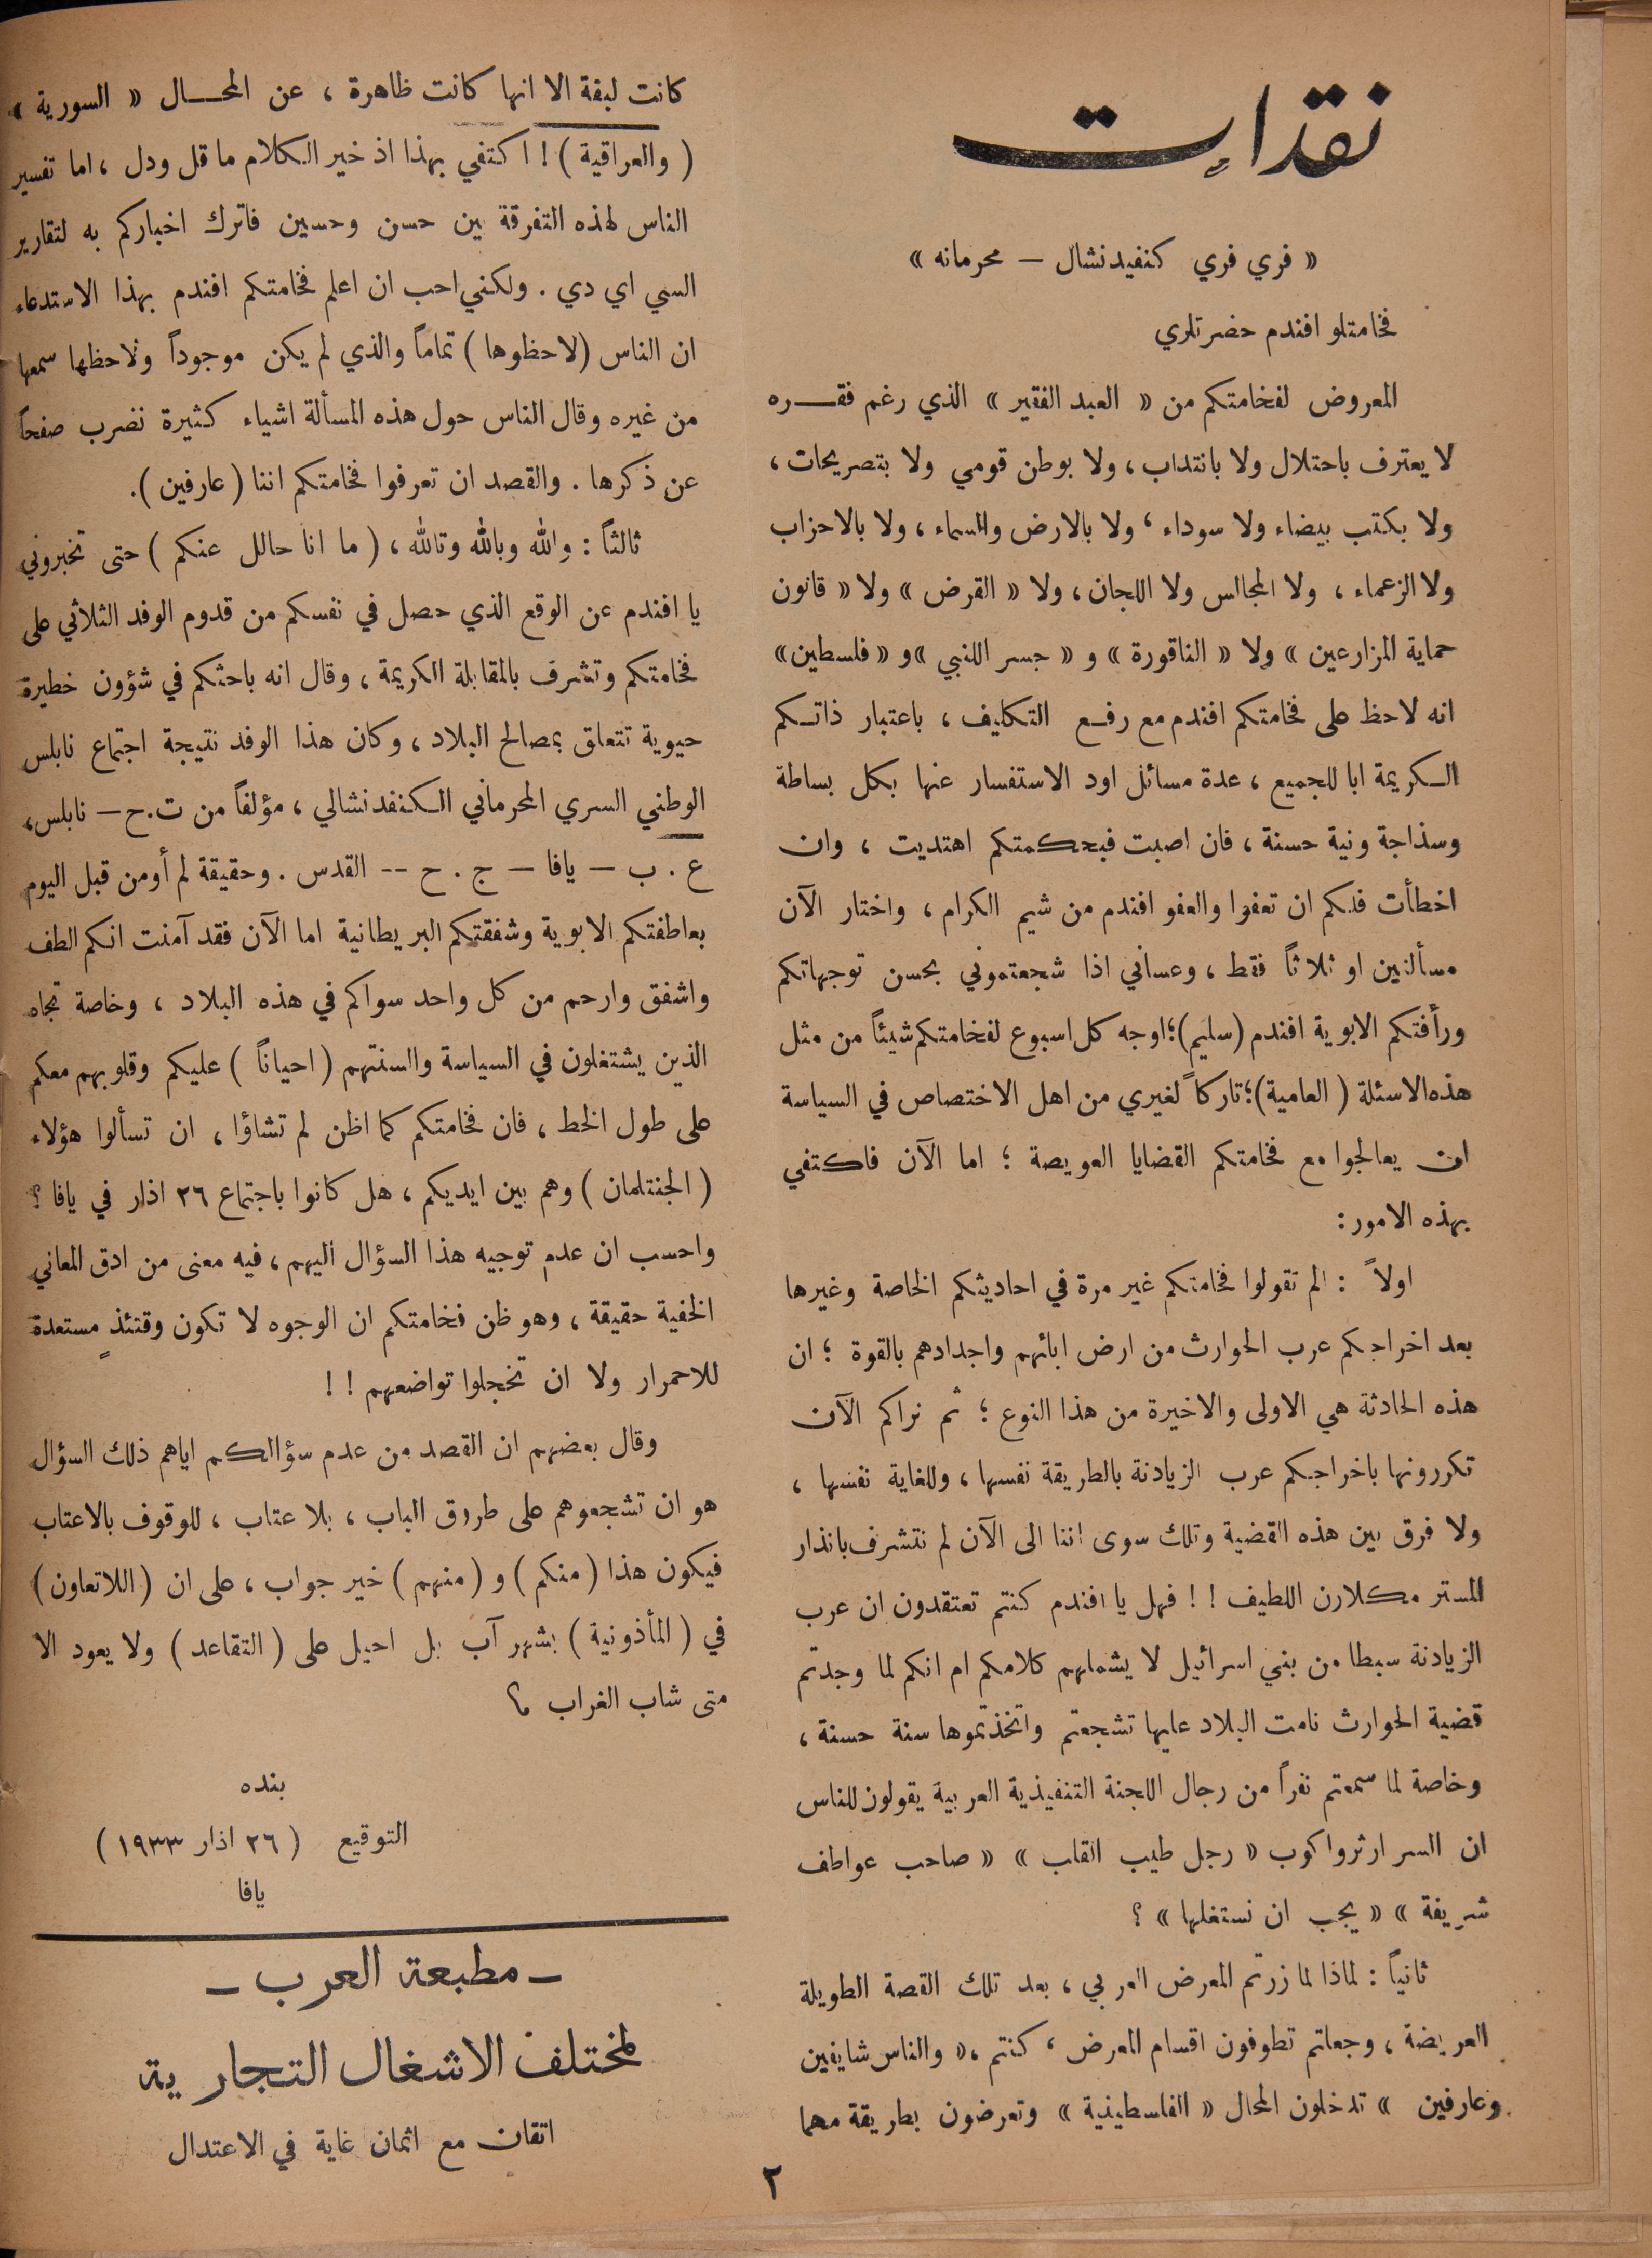 نقدات
« فري فري كنفيدنشال — محرمانه »
فخامتلو افندم حضرتلري
المعروض لفخامتكم من « العبد الفقير » الذي رغم فقـــره
لا يعترف باحتلال ولا بانتداب، ولا بوطن قومي ولا بتصريحات،
ولا بكتب بيضاء ولا سوداء، ولا بالارض والسماء، ولا بالاحزاب
ولا الزعماء، ولا المجالس ولا اللجان، ولا « القرض » ولا « قانون
حماية المزارعين » ولا « الناقورة » و « جسر اللنبي » و « فلسطين »
انه لاحظ على فخامتكم افندم مع رفـع التكليف، باعتبار ذاتـكم
الـكريمة ابا للجميع، عدة مسائل اود الاستفسار عنها بكل بساطة
وسذاجة ونية حسنة، فان اصبت فبحكمتكم اهتديت، وان
اخطأت فلكم ان تعفوا والعفو افندم من شيم الكرام، واختار الآن
مسألتين او ثلاثاً فقط، وعساني اذا شجعتموني بحسن توجهاتكم
ورأفتكم الابوية افندم (سليم)؛ اوجه كل اسبوع لفخامتكم شيئاً من مثل
هذه الاسئلة ( العامية )؛ تاركاً لغيري من اهل الاختصاص في السياسة
ان يعالجوا مع فخامتكم القضايا العويصة؛ اما الآن فاكتفي
بهذه الامور:
اولاً : الم تقولوا فخامتكم غير مرة في احاديثكم الخاصة وغيرها
بعد اخراجكم عرب الحوارث من ارض ابائهم واجدادهم بالقوة؛ ان
هذه الحادثة هي الاولى والاخيرة من هذا النوع؛ ثم نراكم الآن
تكررونها باخراجكم عرب الزيادنة بالطريقة نفسها، وللغاية نفسها،
ولا فرق بين هذه القضية وتلك سوى اننا الى الآن لم نتشرف بانذار
المستر مكلارن اللطيف !! فهل يا افندم كنتم تعتقدون ان عرب
الزيادنة سبطا من بني اسرائيل لا يشملهم كلامكم ام انكم لما وجدتم
قضية الحوارث نامت البلاد عليها تشجعتم واتخذتموها سنة حسنة،
وخاصة لما سمعتم نفراً من رجال اللجنة التنفيذية العربية يقولون للناس
ان السر ارثر واكوب « رجل طيب القلب » « صاحب عواطف
شريفة » « يجب ان نستغلها » ؟
ثانياً : لماذا لما زرتم المعرض العربي، بعد تلك القصة الطويلة
العريضة، وجعلتم تطوفون اقسام المعرض، كنتم، « والناس شايفين
وعارفين » تدخلون المحال « الفلسطينية » وتعرضون بطريقة مهما
كانت لبقة الا انها كانت ظاهرة، عن المحـــال « السورية »
( والعراقية ) ! اكتفي بهذا اذ خير الـكلام ما قل ودل، اما تفسير
الناس لهذه التفرقة بين حسن وحسين فاترك اخباركم به لتقارير
السي اي دي . ولكني احب ان اعلم فخامتكم افندم بهذا الاستدعاء
ان الناس ( لاحظوها ) تماماً والذي لم يكن موجوداً ولاحظها سمعها
من غيره وقال الناس حول هذه المسألة اشياء كثيرة نضرب صفحاً
عن ذكرها . والقصد ان تعرفوا فخامتكم اننا ( عارفين ).
ثالثاً : والله وبالله وتالله، ( ما انا حالل عنكم ) حتى تخبروني
يا افندم عن الوقع الذي حصل في نفسكم من قدوم الوفد الثلاثي على
فخامتكم وتشرف بالمقابلة الكريمة، وقال انه باحثكم في شؤون خطيرة
حيوية تتعلق بمصالح البلاد، وكان هذا الوفد نتيجة اجتماع نابلس
الوطني السري المحرماني الـكنفدنشالي، مؤلفاً من ت.ح — نابلس،
ع . ب — يافا — ج . ح -- القدس . وحقيقة لم أومن قبل اليوم
بعاطفتكم الابوية وشفقتكم البريطانية اما الآن فقد آمنت انكم الطف
واشفق وارحم من كل واحد سواكم في هذه البلاد، وخاصة تجاه
الذين يشتغلون في السياسة والسنتهم ( احياناً ) عليكم وقلوبهم معكم
على طول الخط، فان فخامتكم كما اظن لم تشاؤا، ان تسألوا هؤلاء
( الجنتلمان ) وهم بين ايديكم، هل كانوا باجتماع ٢٦ اذار في يافا ؟
واحسب ان عدم توجيه هذا السؤال اليهم، فيه معنى من ادق المعاني
الخفية حقيقة، وهو ظن فخامتكم ان الوجوه لا تكون وقتئذٍ مستعدة
للاحمرار ولا ان تخجلوا تواضعهم !!
وقال بعضهم ان القصد من عدم سؤالكم اياهم ذلك السؤال
هو ان تشجعوهم على طروق الباب، بلا عتاب، للوقوف بالاعتاب
فيكون هذا ( منكم ) و ( منهم ) خير جواب، على ان ( اللاتعاون )
في ( المأذونية ) بشهر آب بل احيل على ( التقاعد ) ولا يعود الا
متى شاب الغراب ؟
بنده
التوقيع ( ٢٦ اذار ١٩٣٣ )
يافا
— مطبعة العرب —
لمختلف الاشغال التجارية
اتقان مع اثمان غاية في الاعتدال
٢